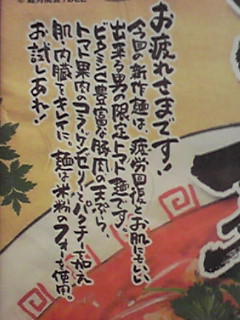 お疲れさまです！
今回の新作麺は、疲労回復とお肌にもいい、
出来る男の限定トマト麺です。
ビタミンC豊富な豚肉の天ぷら、
トマト果肉・コラーゲンゼリーとパクチーを加え
肌・内臓をキレイに 麺は米粉のフォーを使用。
お試しあれ！